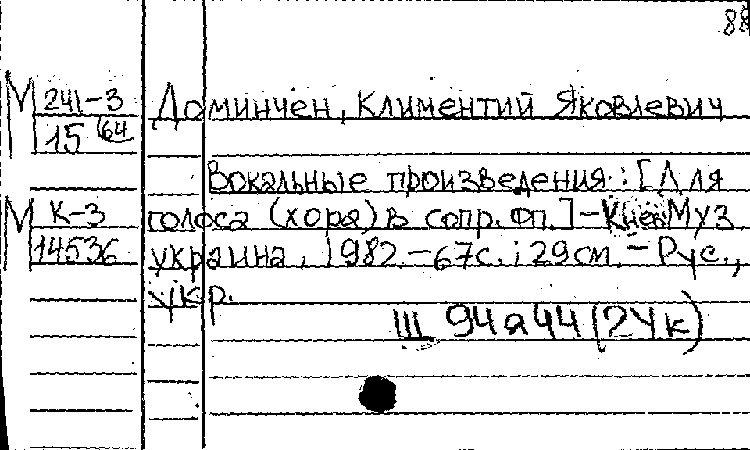 88
М 241-3 Доминчен, Климентий Яковлевич
15 (64
Вокальные произведения: [Для
М К-3 голоса (хора) в сопр. фп.] - Киев Муз
14536 украина, 1982. - 67с.; 29см. - Рус.,
укр.
Ш 94я44(2Ук)